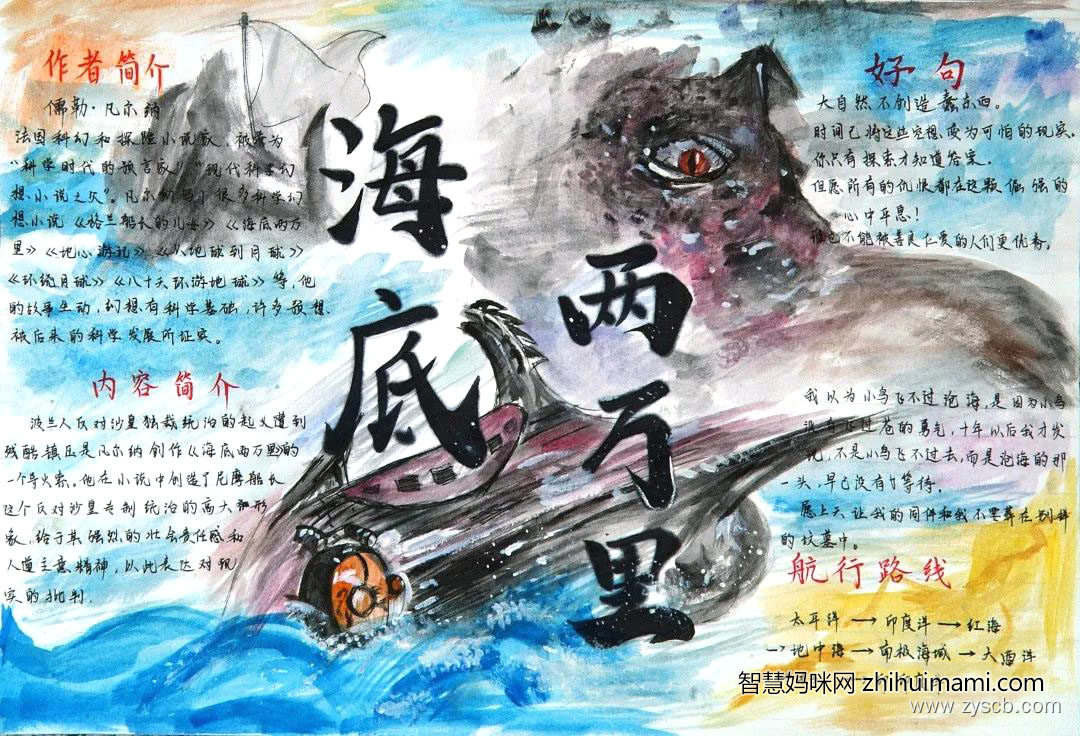 作者简介
儒勒·凡尔纳
法国科幻和探险小说家，被誉为
“科学时代的预言家”“现代科学幻
想小说之父”。凡尔纳写了很多科学幻
想小说《格兰船长的儿女》《海底两万
里》《地心游记》《从地球到月球》
《环绕月球》《八十天环游地球》等，他
的故事生动，幻想有科学基础，许多预想
被后来的科学发展所证实。
内容简介
波兰人反对沙皇独裁统治的起义遭到
残酷镇压是凡尔纳创作《海底两万里》的
一个导火索，他在小说中创造了尼摩船长
这个反对沙皇专制统治的高大形
象，给予其强烈的社会责任感和
人道主意精神，以此表达对现
实的批判．
海底
两万里
好句
大自然不创造蠢东西。
时间已将这些空想变为可怕的现实．
你只有探索才知道答案．
但愿所有的仇恨都在这颗倔强的
心中平息！
谁也不能被善良仁爱的人们更优秀。
我以为小鸟飞不过沧海，是因为小鸟
没有飞过沧的勇气，十年以后我才发
现，不是小鸟飞不过去，而是沧海的那
一头，早已没有了等待．
愿上天让我的同伴和我不要葬在别样
的坟墓中。
航行路线
太平洋→印度洋→红海
→地中海→南极海域→大西洋
智慧妈咪网 zhihuimami.com
www.zyscb.com